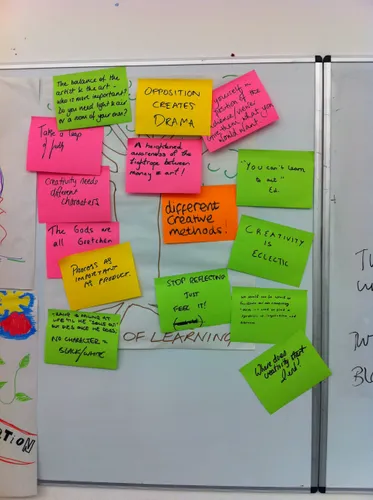 The balance of the
artist to the art -
who is more important?
Do you need light & air
or a room of your own?
OPPOSITION
CREATES
DRAMA
yourself in
position of the
audience/viewer
give them what you
would want
Take a leap
of faith
A heightened
awareness of the
tightrope between
money & art!
"You can't learn
to act"
Ed.
Creativity needs
different
characters
different
creative
methods!
The Gods are
all Gretchen
CREATIVITY
IS
ECLECTIC
Process as
important
as product.
STOP REFLECTING
JUST
FEEL IT!
NO CHARACTER =
BLACK/WHITE
OF LEARNING
Where does
creativity start
& end?
TION
BL